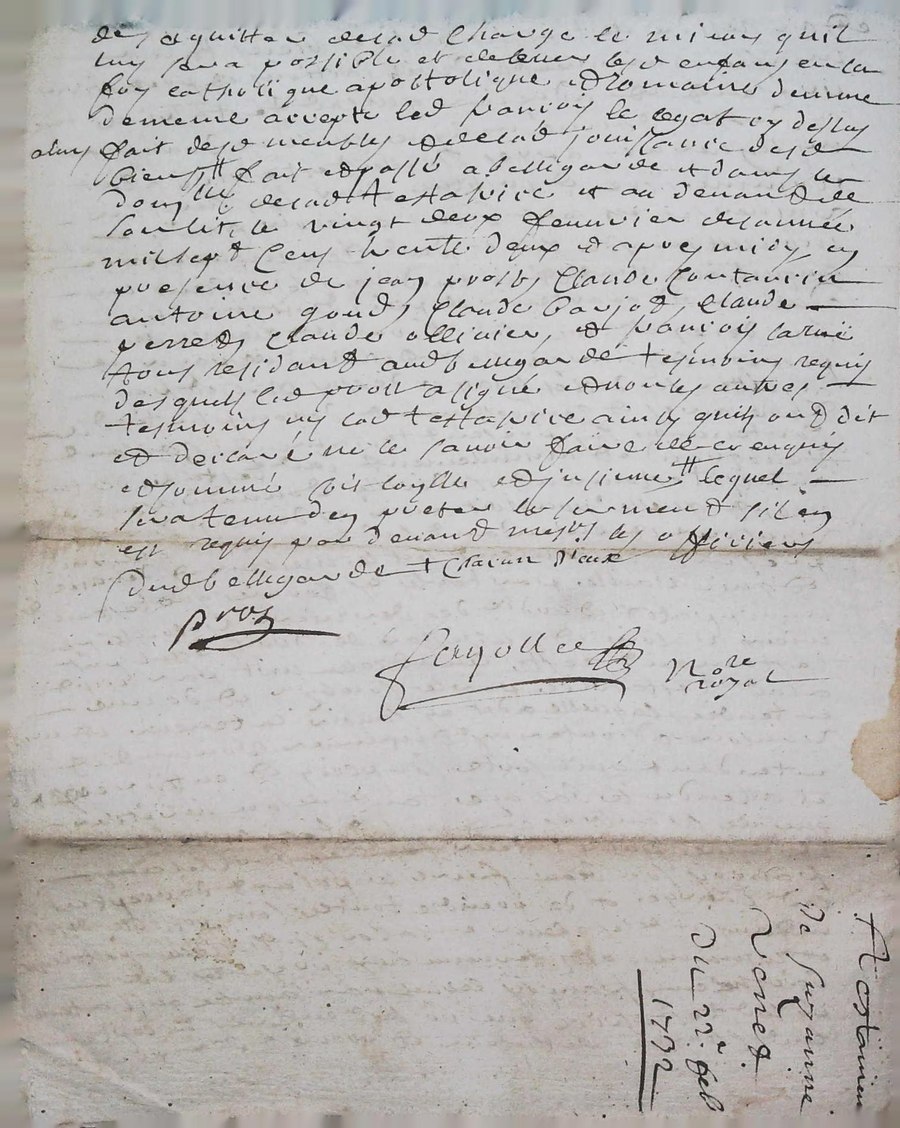 de saquitter de lad charge le mieux quil
luy sera possible et delever lesd enfans en la
foy catholique apostolique et Romaine
de meme accepte led francois le legat cy dessus
a luy fait desd meubles et de lad jouissance desd
biens fait et passé a bellegarde et dans le
domlle de lad testatrice et au devant de
son lit, le vingt deux febvrier de année
mil sept cens trente deux et apres midy en
presence de jean prost, Claude Contauvin
antoine gouds, Claude barjot, Claude
perret, Claude ollivier, et francois
tous residant aud bellegarde tesmoins requis
desquels led prost a signe et non les autres
tesmoins ny lad testatrice ainsy quils ont dit
et declaré ne le savoir faire de ce enquis
et sommé soit et insinué lequel
sera tenu den preter le serment sil en
est requis par devant mesrs les officiers
dud bellegarde + chacun deux
Prost
fayolle Nore
royal
Testamen
de Suzanne
Verret
Du 22e feb
1732